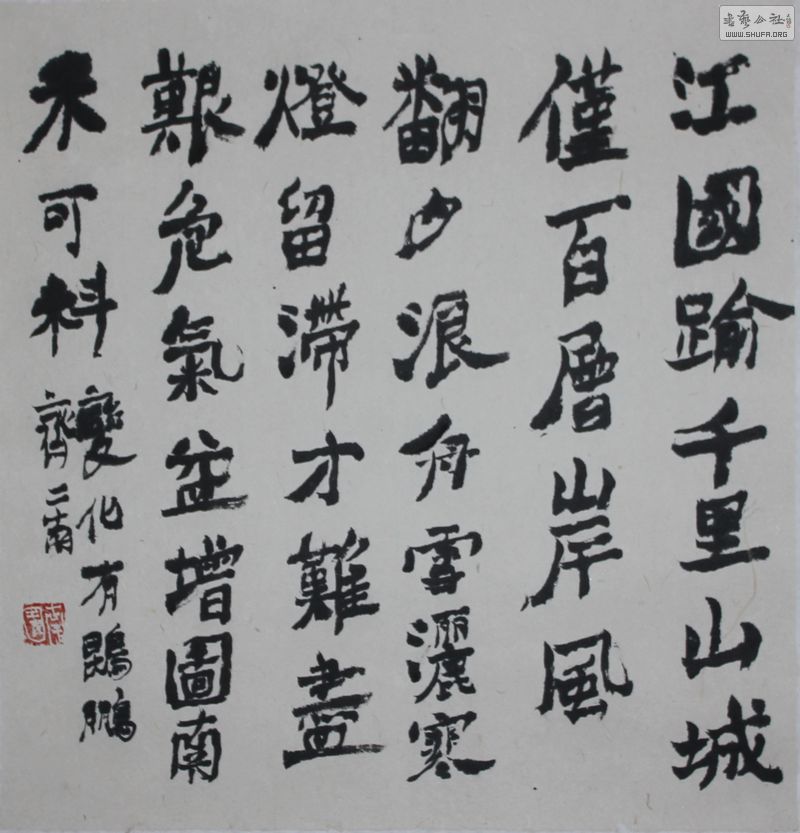 書藝公社
WWW.SHUFA.ORG
江國踰千里山城
僅百層岸風
翻夕浪舟雪灑寒
燈留滯才難盡
艱危氣益增圖南
未可料
變化有鵾鵬
齊二南